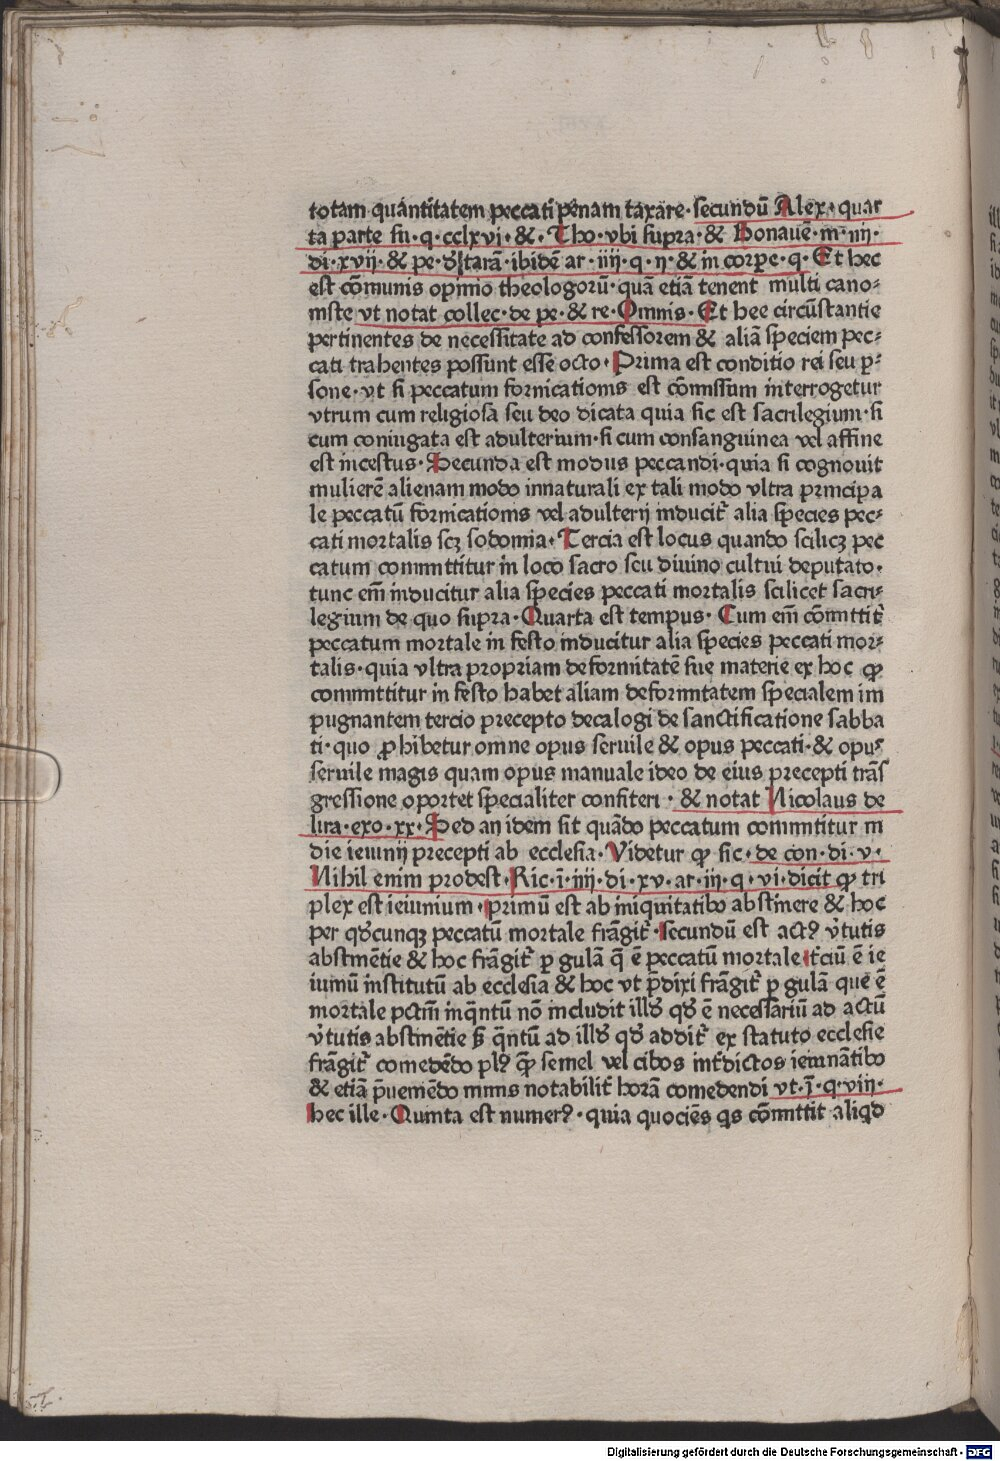 totam quantitatem peccati penam taxare·secundū Alex·quar
ta parte su·q·cclxvi·&·Tho·vbi supra·& Bonauē·in·iiii·
di·xvii·& pe·distarā·ibidē ar·iiii·q·ii·& in corpe·q·Et hec
est cōmunis opinio theologorū·quā etiā tenent multi cano⸗
niste vt notat collec·de pe·& re·Omnis·Et hee circūstantie
pertinentes de necessitate ad confessorem & aliā speciem pec⸗
cati trahentes possunt esse octo·Prima est conditio rei seu ꝑ⸗
sone·vt si peccatum fornicationis est cōmissum interrogetur
vtrum cum religiosa seu deo dicata quia sic est sacrilegium·si
cum coniugata est adulterium·si cum consanguinea vel affine
est incestus·Secunda est modus peccandi·quia si cognouit
mulierē alienam modo innaturali ex tali modo vltra principa
le peccatū fornicationis vel adulterij inducit᷑ alia species pec⸗
cati mortalis scꝫ sodomia·Tercia est locus quando scilicꝫ pec
catum committitur in loco sacro seu diuino cultui deputato·
tunc em̄ inducitur alia species peccati mortalis scilicet sacri⸗
legium de quo supra·Quarta est tempus·Cum em̄ cōmittit᷑
peccatum mortale in festo inducitur alia species peccati mor⸗
talis·quia vltra propriam deformitatē sue materie ex hoc ꝙ
committitur in festo habet aliam deformitatem specialem im
pugnantem tercio precepto decalogi de sanctificatione sabba
ti·quo ꝓhibetur omne opus seruile & opus peccati·& opus
seruile magis quam opus manuale ideo de eius precepti trāſ
gressione oportet specialiter confiteri·& notat Nicolaus de
lira·exo·xx·Sed an idem sit quādo peccatum committitur in
die ieiunij precepti ab ecclesia·Videtur ꝙ sic·de con·di·v·
Nihil enim prodest·Ric·ī·iiii·di·xv·ar·iii·q·vi·dicit ꝙ tri
plex est ieiunium·primū est ab iniquitatibꝰ abstinere & hoc
per qd̕cunqꝫ peccatū mortale frāgit᷑·secundū est actꝰ v̕tutis
abstinētie & hoc frāgit᷑ ꝑ gulā q̄ ē peccatū mortale·t̕ciū ē ie
iuniū institutū ab ecclesia & hoc vt p̄dixi frāgit᷑ ꝑ gulā que ē
mortale pctm̄ inq̄ntū nō includit illd̕ qd̕ ē necessariū ad actū
v̕tutis abstinētie sꝫ q̄ntū ad illd̕ qd̕ addit᷑ ex statuto ecclesie
frāgit᷑ comedēdo plꝰ ꝙ̄ semel vel cibos int̕dictos ieiunātibꝰ
& etiā p̄ueniēdo nimis notabilit̕ horā comedendi vt·ī·q·viii·
hec ille·Quinta est numerꝰ·quia quociēs qs cōmittit aliqd
Digitalisierung gefördert durch die Deutsche Forschungsgemeinschaft - DFG